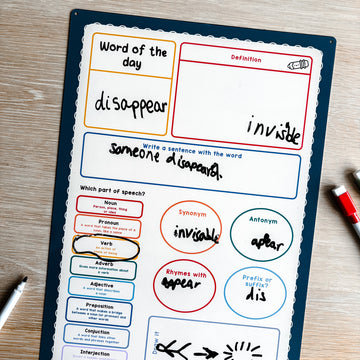 Word of the
day
disappear
Definition
invisible
Write a sentence with the word
someone disapeard.
Which part of speech?
Noun
Person, place, thing
or idea
Pronoun
A word that takes the place of a
noun, like a name
Verb
An action or
state of being
Adverb
Gives more information about
a verb
Adjective
A word that describes
a noun
Preposition
A word that makes a bridge
between a noun (or pronoun) and
other words
Conjuction
A word that joins other
words and phrases together
Interjection
Synonym
invisable
Antonym
apear
Rhymes with
appear
Prefix or
suffix?
dis
Draw it